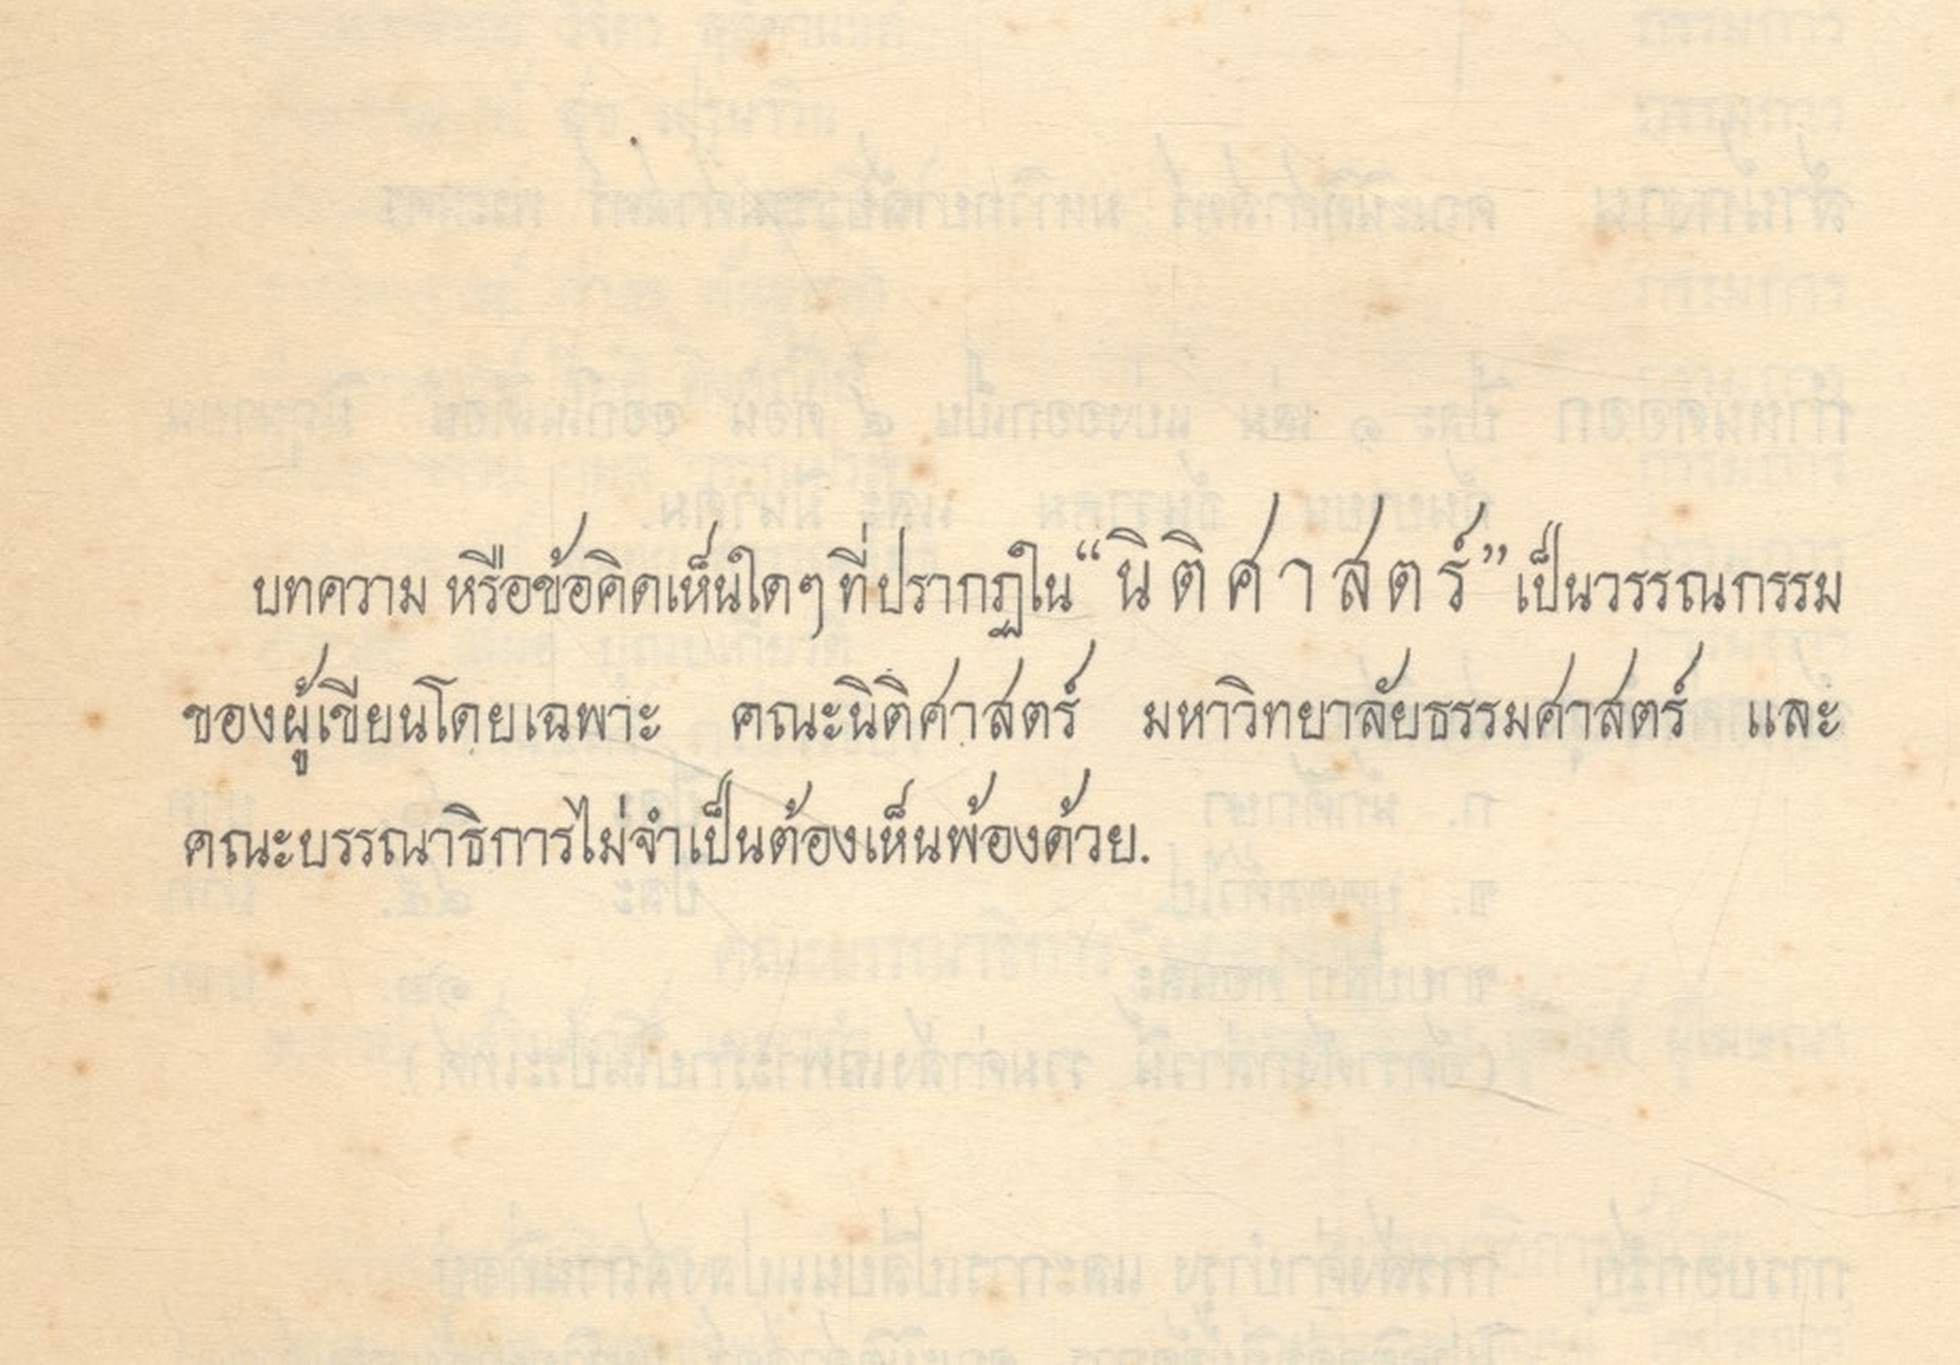 บทความ หรือข้อคิดเห็นใดๆ ที่ปรากฏใน “นิติศาสตร์” เป็นวรรณกรรม
ของผู้เขียนโดยเฉพาะ คณะนิติศาสตร์ มหาวิทยาลัยธรรมศาสตร์ และ
คณะบรรณาธิการไม่จำเป็นต้องเห็นพ้องด้วย.